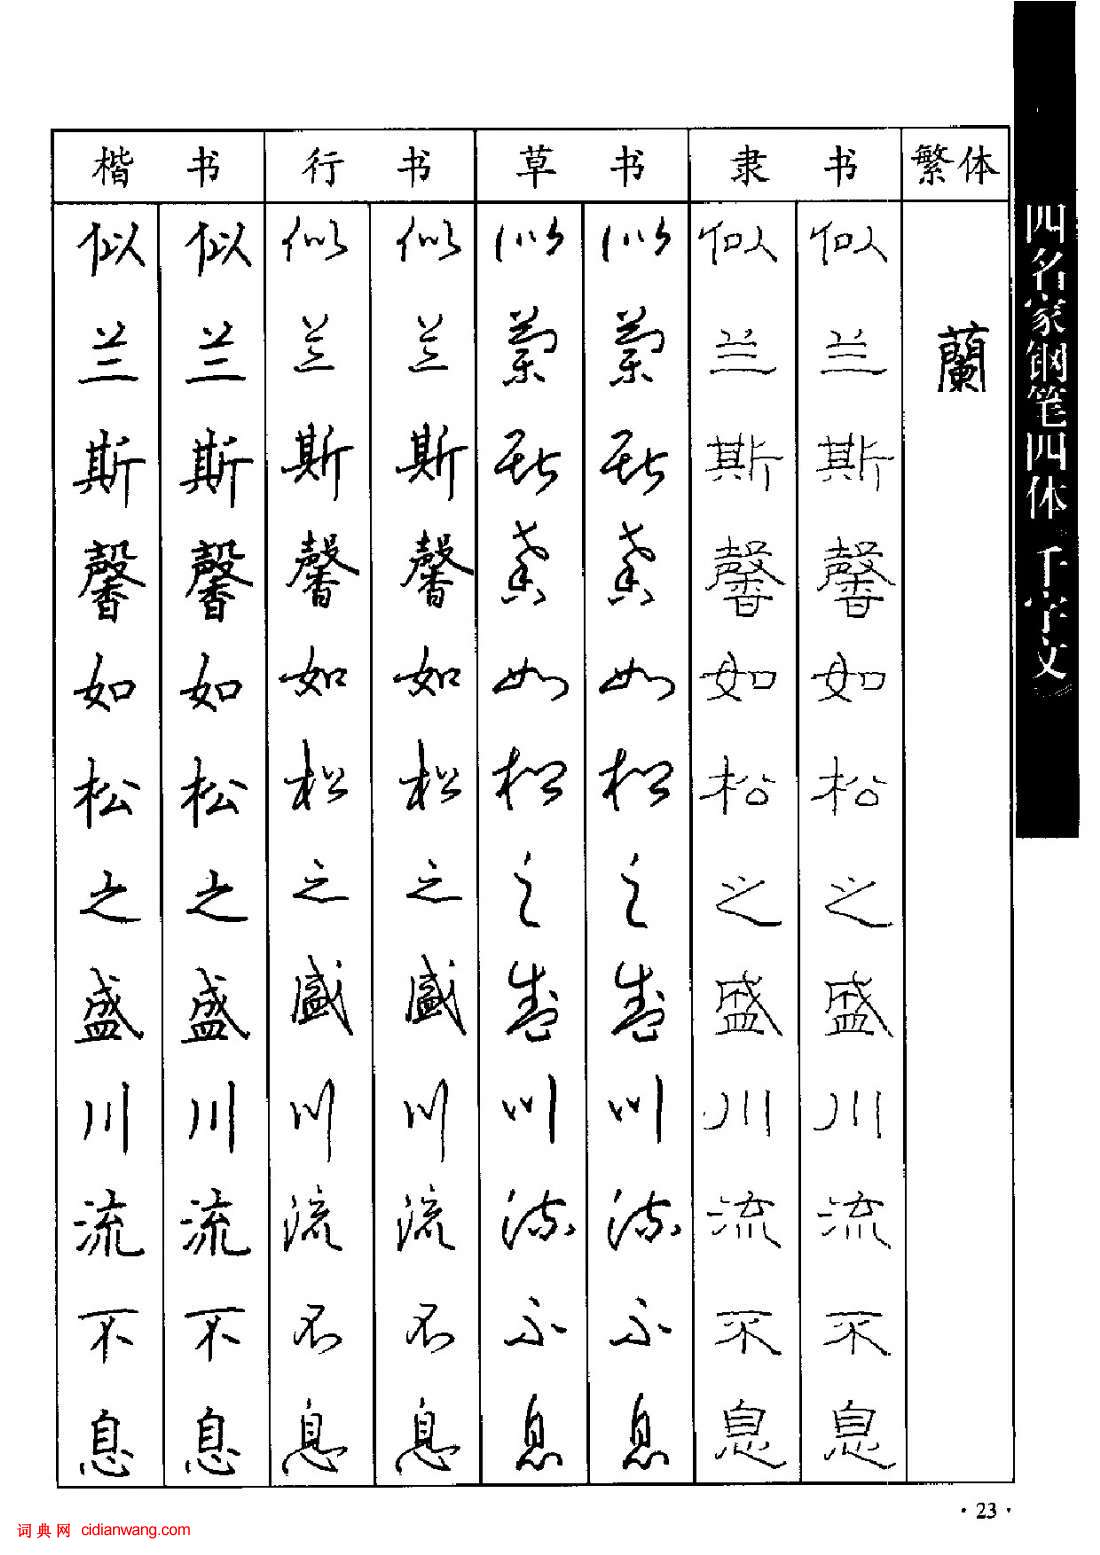 楷书 行书 草书 隶书 繁体
似 似 似 似 似 似 似 似
兰 兰 兰 兰 兰 兰 兰 兰 蘭
斯 斯 斯 斯 斯 斯 斯 斯
馨 馨 馨 馨 馨 馨 馨 馨
如 如 如 如 如 如 如 如
松 松 松 松 松 松 松 松
之 之 之 之 之 之 之 之
盛 盛 盛 盛 盛 盛 盛 盛
川 川 川 川 川 川 川 川
流 流 流 流 流 流 流 流
不 不 不 不 不 不 不 不
息 息 息 息 息 息 息 息
四名家钢笔四体《千字文》
·23·
词典网 cidianwang.com